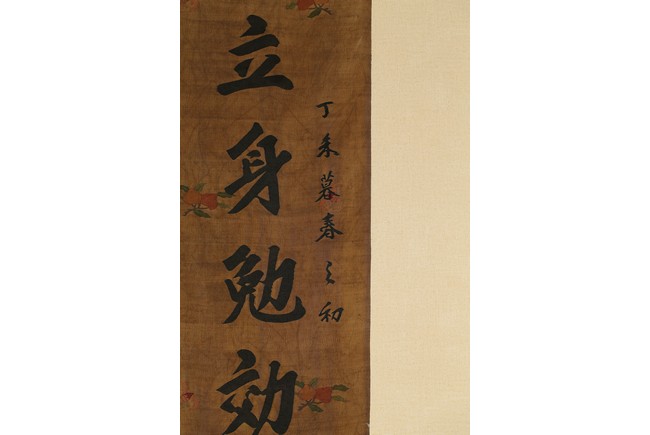 丁未暮春之初
立身勉効